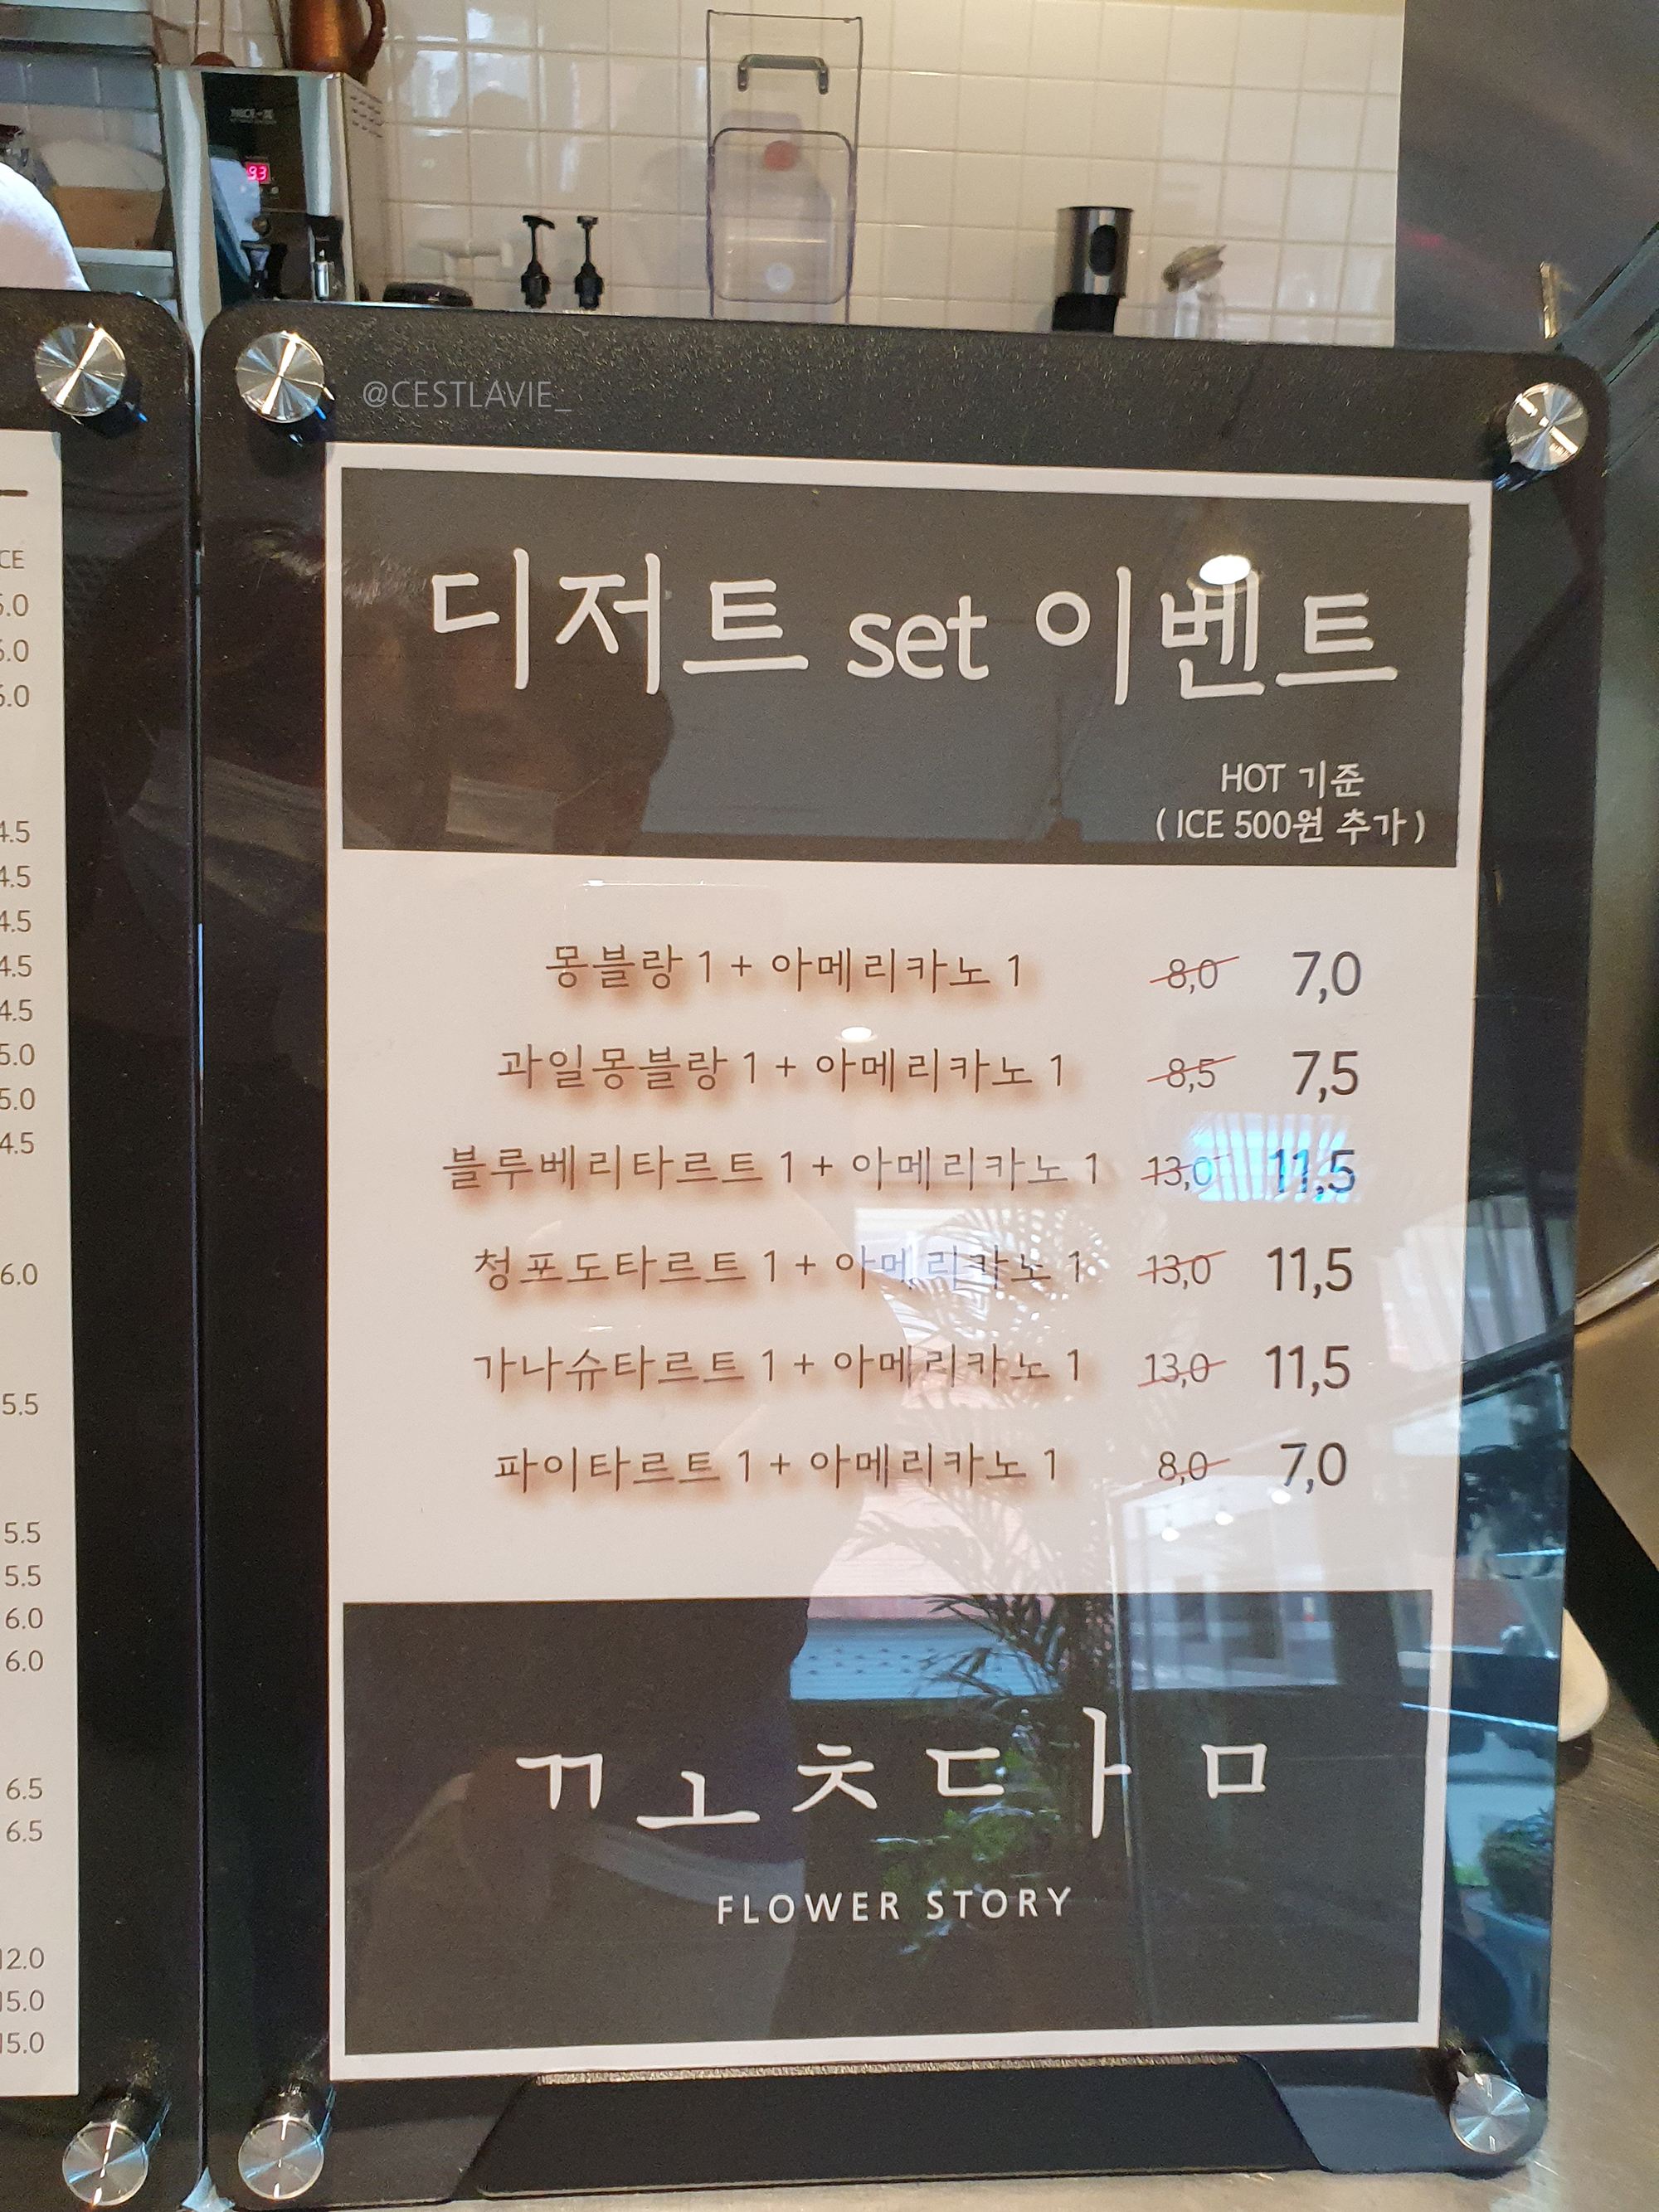 @CESTLAVIE_
93
디저트 set 이벤트
HOT 기준
( ICE 500원 추가 )
몽블랑 1 + 아메리카노 1 8,0 7,0
과일몽블랑 1 + 아메리카노 1 8,5 7,5
블루베리타르트 1 + 아메리카노 1 13,0 11,5
청포도타르트 1 + 아메리카노 1 13,0 11,5
가나슈타르트 1 + 아메리카노 1 13,0 11,5
파이타르트 1 + 아메리카노 1 8,0 7,0
ㄲㅗㅊㄷㅏㅁ
FLOWER STORY
4.5
4.5
4.5
4.5
4.5
5.0
5.0
4.5
6.0
5.5
5.5
5.5
6.0
6.0
6.5
6.5
12.0
15.0
15.0